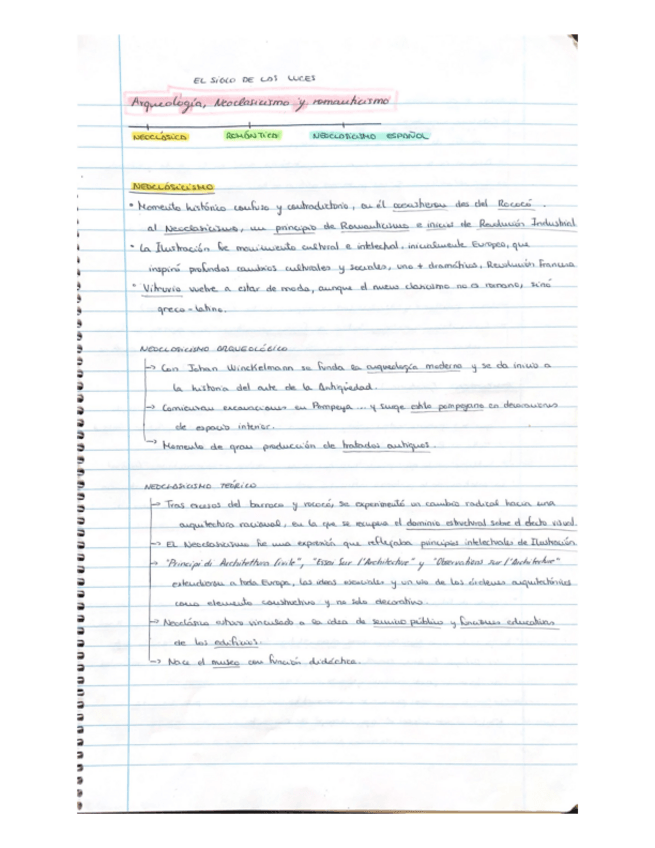 EL SIGLO DE LAS LUCES
Arqueología, Neoclasicismo y romanticismo
NEOCLÁSICO ROMÁNTICO NEOCLASICISMO ESPAÑOL
NEOCLÁSICISMO
• Momento histórico confuso y contradictorio, en él dos del Rococó.
al Neoclasicismo, un principio de Romanticismo e inicios de Revolución Industrial
• La Ilustración fue movimiento cultural e intelectual, inicialmente Europeo, que
inspiró profundos cambios culturales y sociales, uno + dramático, Revolución Francesa
• Vitruvio vuelve a estar de moda, aunque el nuevo clasicismo no es romano, sinó
greco-latino.
NEOCLASICISMO ARQUEOLÓGICO
-> Con Johan Winckelmann se funda la arqueología moderna y se da inicio a
la historia del arte de la Antigüedad.
-> Comienzan excavaciones en Pompeya... y surge estilo pompeyano en decoraciones
de espacio interior.
-> Momento de gran producción de tratados antiguos.
NEOCLASICISMO TEÓRICO
-> Tras excesos del barroco y rococó, se experimentó un cambio radical hacia una
arquitectura racional, en la que se recupera el dominio estructural sobre el efecto visual.
-> EL Neoclasicismo fue una expresión que reflejaba principios intelectuales de Ilustración.
-> "Principi di Architettura Civile", "Essai Sur l'Architecture" y "Observations Sur l'Architecture"
extendieron a toda Europa, las ideas esenciales y un uso de los órdenes arquitectónicos
como elemento constructivo y no solo decorativo.
-> Neoclásico estuvo vinculado a la idea de servicio público y funciones educativas
de los edificios.
-> Nace el museo con función didáctica.